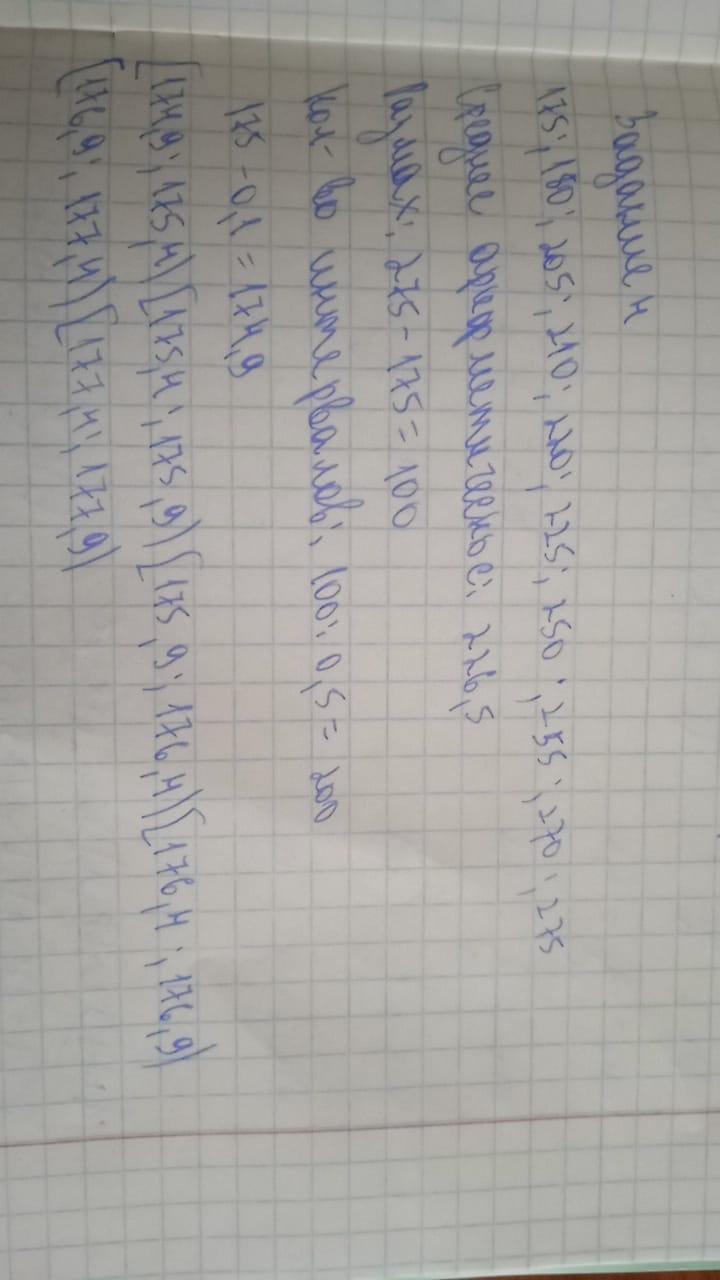 Задание 4
175; 180; 205; 210; 220; 225; 250; 255; 270; 275
Среднее арифметическое: 226,5
Размах: 275 - 175 = 100
Кол-во интервалов: 100 : 0,5 = 200
175 - 0,1 = 174,9
[174,9; 175,4) [175,4; 175,9) [175,9; 176,4) [176,4; 176,9)
[176,9; 177,4) [177,4; 177,9)